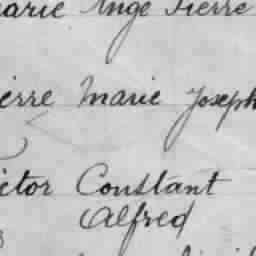 arie Ange Pierre
ierre Marie Joseph
ictor Constant
Alfred